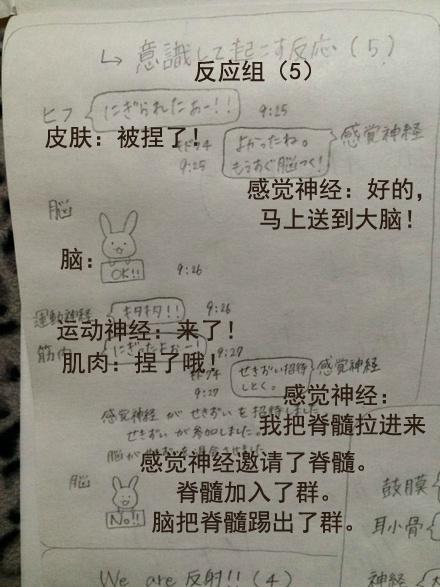 ↳ 意識して起こす反応（5）
反应组（5）
ヒフ
にぎられたぁー!!
9:25
皮肤：被捏了！
よかったね。
もうすぐ脳つく!
感覚神経
9:25
感觉神经：好的，
马上送到大脑！
脳
脑：
OK!!
9:26
運動神経
キタキタ!!
9:26
运动神经：来了！
筋
9:27
肌肉：捏了哦！
せきずい招待
しとく。
感覚神経
9:27
感觉神经：
我把脊髓拉进来
感覚神経 が せきずい を 招待しました
せきずい が参加しました。
感觉神经邀请了脊髓。
脊髓加入了群。
脳
No!!
脑把脊髓踢出了群。
鼓膜
耳小骨
We are 反射!!（4）
神経